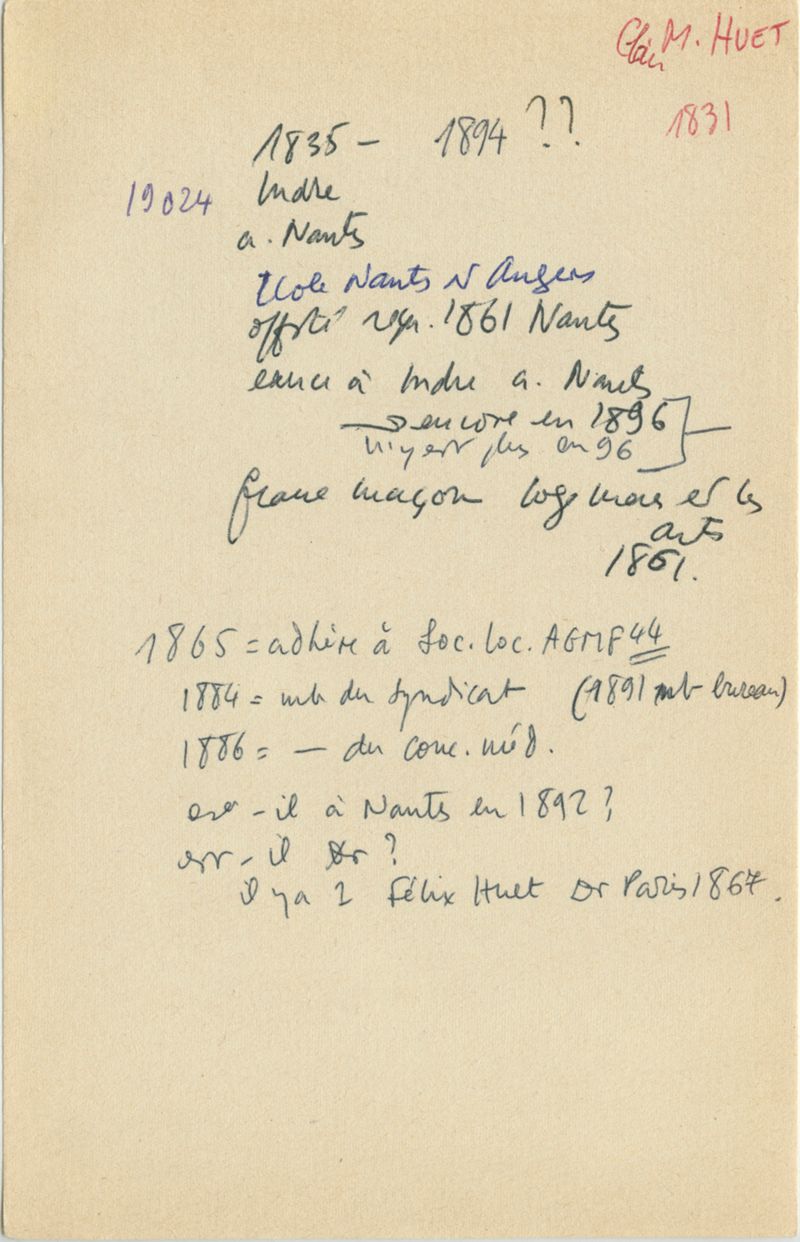 M. HUET
1831
1835 - 1894 ??
19024 Indre
a. Nantes
Ecole Nants et Angers
offsté reçu. 1861 Nantes
exerce à Indre a. Nantes
→ encore en 1896
n'y est plus en 96
franc maçon loge mars et les
arts
1861.
1865 = adhère à Soc. loc. AGMF 44
1884 = mb du syndicat (1891 mb bureau)
1886 = — du conc. méd.
est-il à Nantes en 1892 ?
est-il Dr ?
il y a 2 Félix Huet Dr Paris 1867.